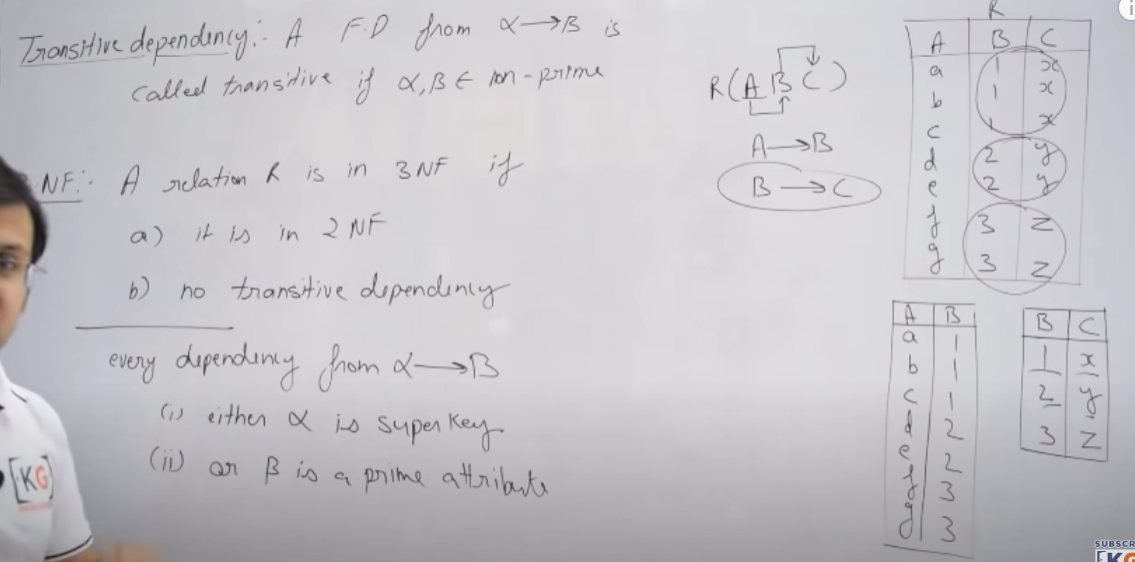 Transitive dependency:- A F.D from α→B is
called transitive if α, B ∈ non-prime
NF:- A relation R is in 3NF if
a) it is in 2NF
b) no transitive dependency
every dependency from α→B
(i) either α is super key
(ii) or β is a prime attribute
R(A B C)
A→B
B→C
R
A B C
a 1 x
b 1 x
c 1 x
d 2 y
e 2 y
f 3 z
g 3 z
A B
a 1
b 1
c 1
d 2
e 2
f 3
g 3
B C
1 x
2 y
3 z
[KG]
SUBSCR
KG
i